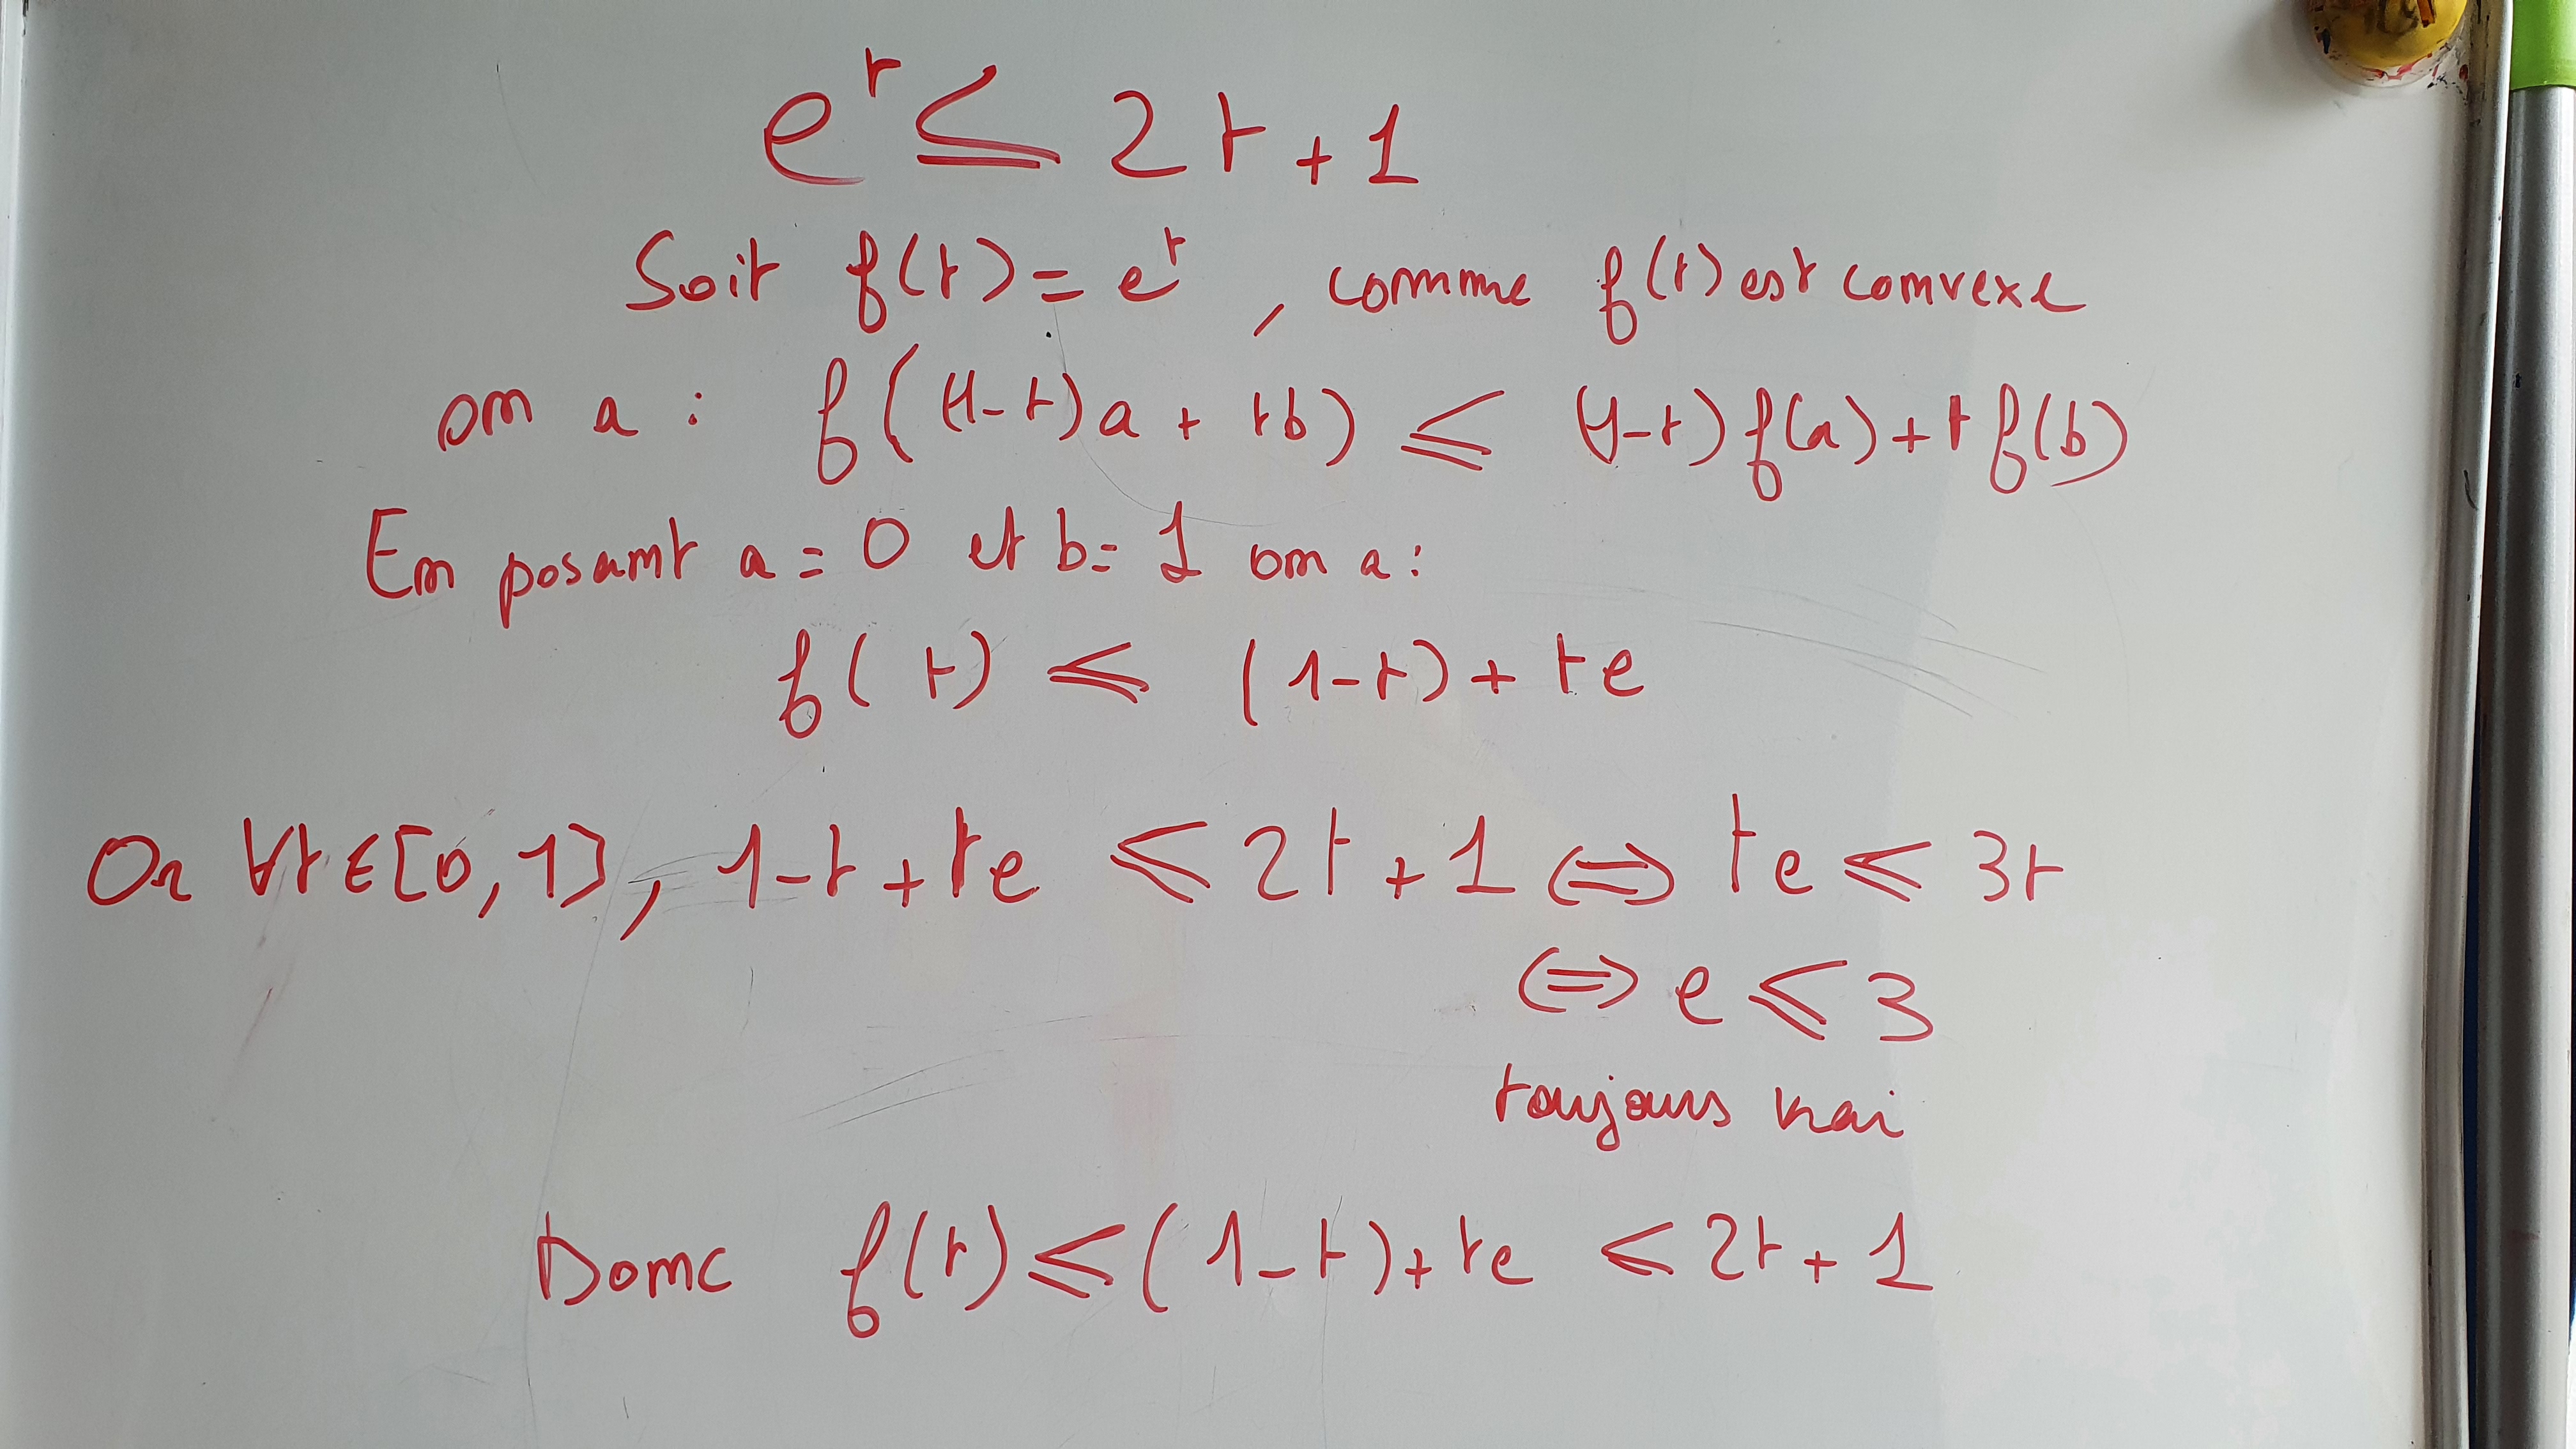 e^t ⩽ 2t + 1
Soit f(t) = e^t , comme f(t) est convexe
on a : f((1-t)a + tb) ⩽ (1-t)f(a) + t f(b)
En posant a = 0 et b = 1 on a :
f(t) ⩽ (1-t) + te
Or ∀t ∈ [0, 1], 1-t + te ⩽ 2t + 1 ⇔ te ⩽ 3t
⇔ e ⩽ 3
toujours vrai
Donc f(t) ⩽ (1-t) + te ⩽ 2t + 1